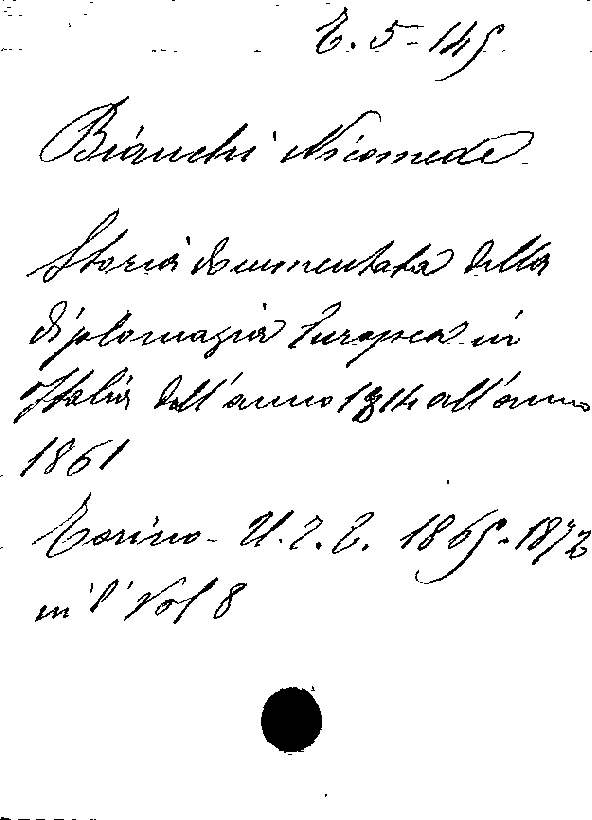 E. 5-145
Bianchi Nicomede
Storia documentata della
diplomazia Europea in
Italia dall'anno 1814 all'anno
1861
Torino - U.T.E. 1865-1872
in 8° Vol 8